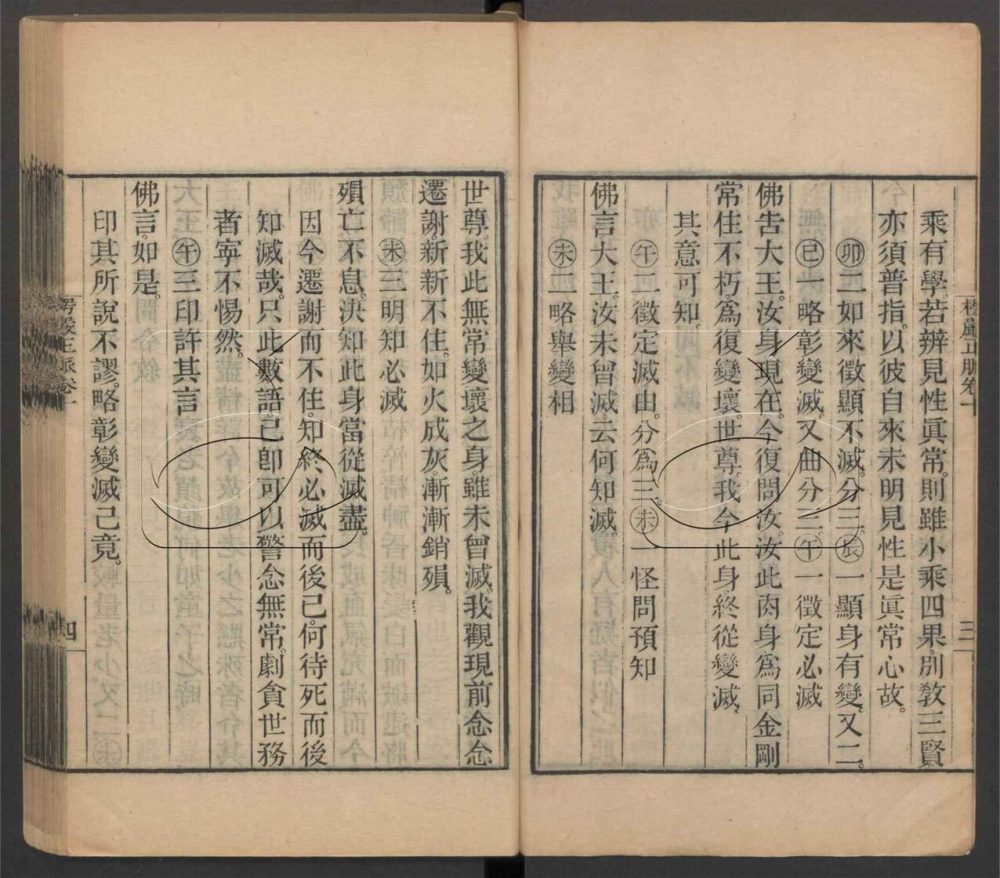 乘有學若辨見性眞常。則雖小乘四果。別敎三賢。
亦須普指。以彼自來未明見性是眞常心故。
㊞卯二如來徵顯不滅。分三。辰一顯身有變。又二。
巳一略彰變滅。又曲分三。午一徵定必滅
佛告大王。汝身現在。今復問汝。汝此肉身。爲同金剛
常住不朽。爲復變壞。世尊。我今此身。終從變滅。
其意可知。
午二徵定滅由。分爲三。未一怪問預知
佛言大王。汝未曾滅。云何知滅。
未二略舉變相
楞嚴正脈卷十
三
世尊。我此無常變壞之身。雖未曾滅。我觀現前。念念
遷謝。新新不住。如火成灰。漸漸銷殞。
未三明知必滅
殞亡不息。決知此身。當從滅盡。
因今遷謝而不住。知終必滅而後已。何待死而後
知滅哉。只此數語。已卽可以警念無常。劇貪世務
者。寧不惕然。
午三印許其言
佛言。如是。
印其所說不謬。略彰變滅已竟。
四